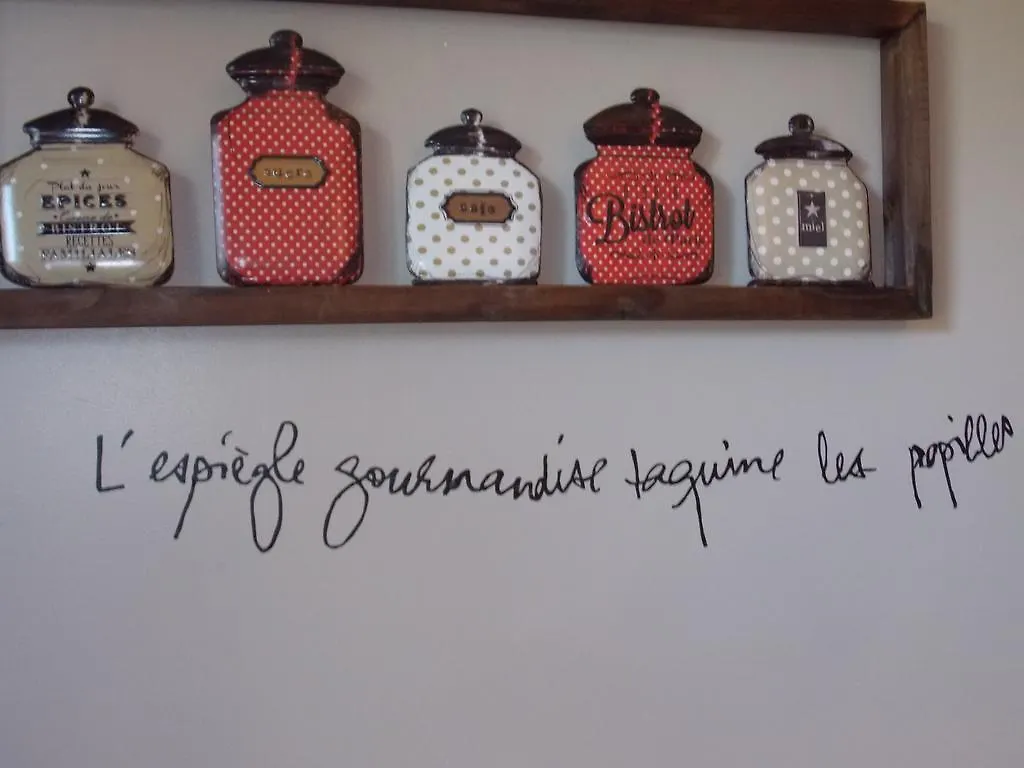 Plat du jour
EPICES
BISTROT
RECETTES
FAMILIALES
Bistrot
de Paris
miel
L'espiègle gourmandise taquine les papilles